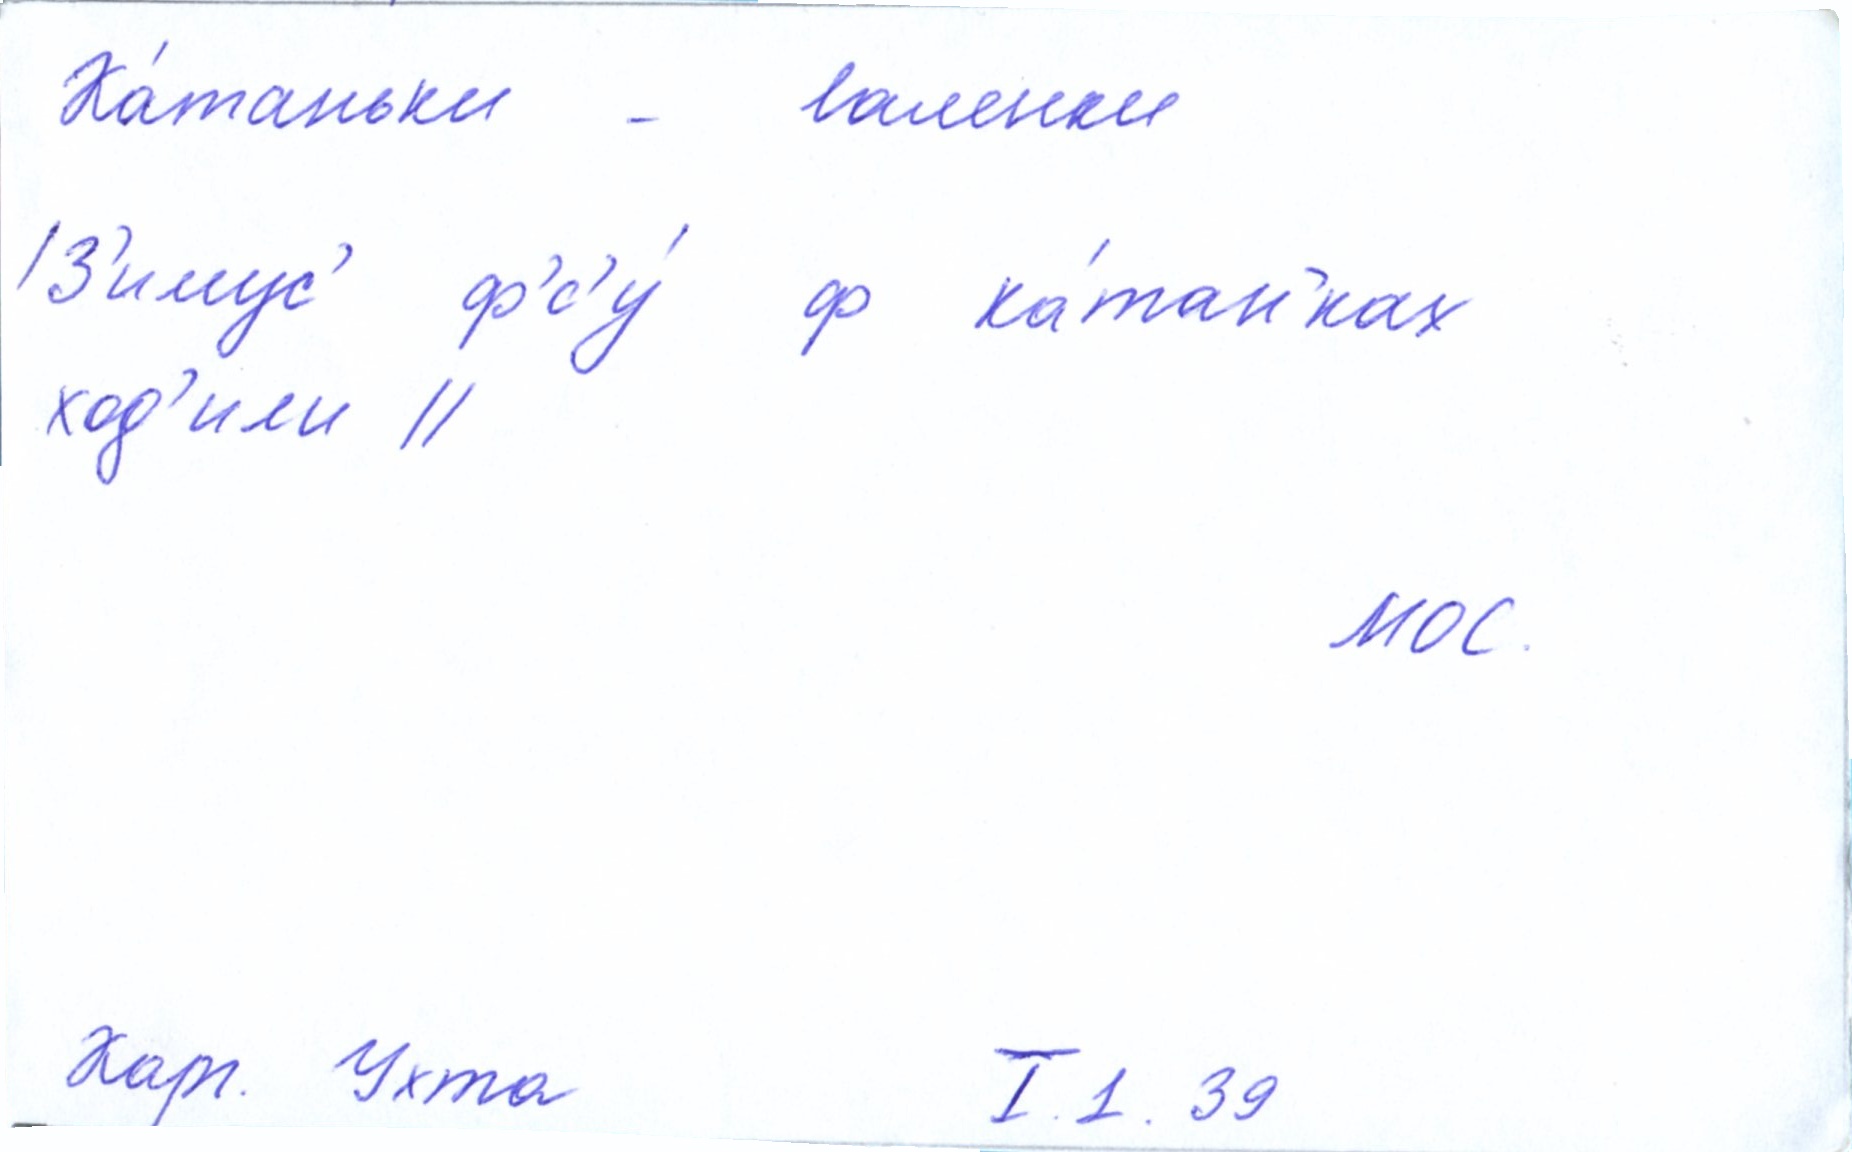 Ка́таньки - валенки
/З'имус' ф'с'у́ ф ка́тан'ках
ход'или //
МОС.
Карг. Ухта
I. 1. 39